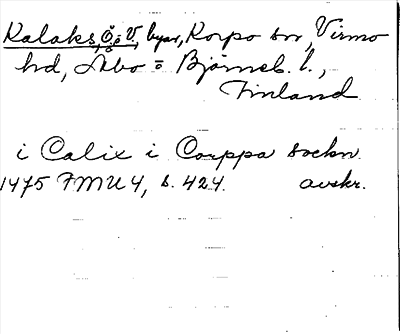 Kalaks, Ö. o. V. byar, Korpo sn, Virmo
hd, Åbo o Björneb. l.,
Finland
i Calix i Corppa sockn
1475 FMU 4, s. 424. avskr.